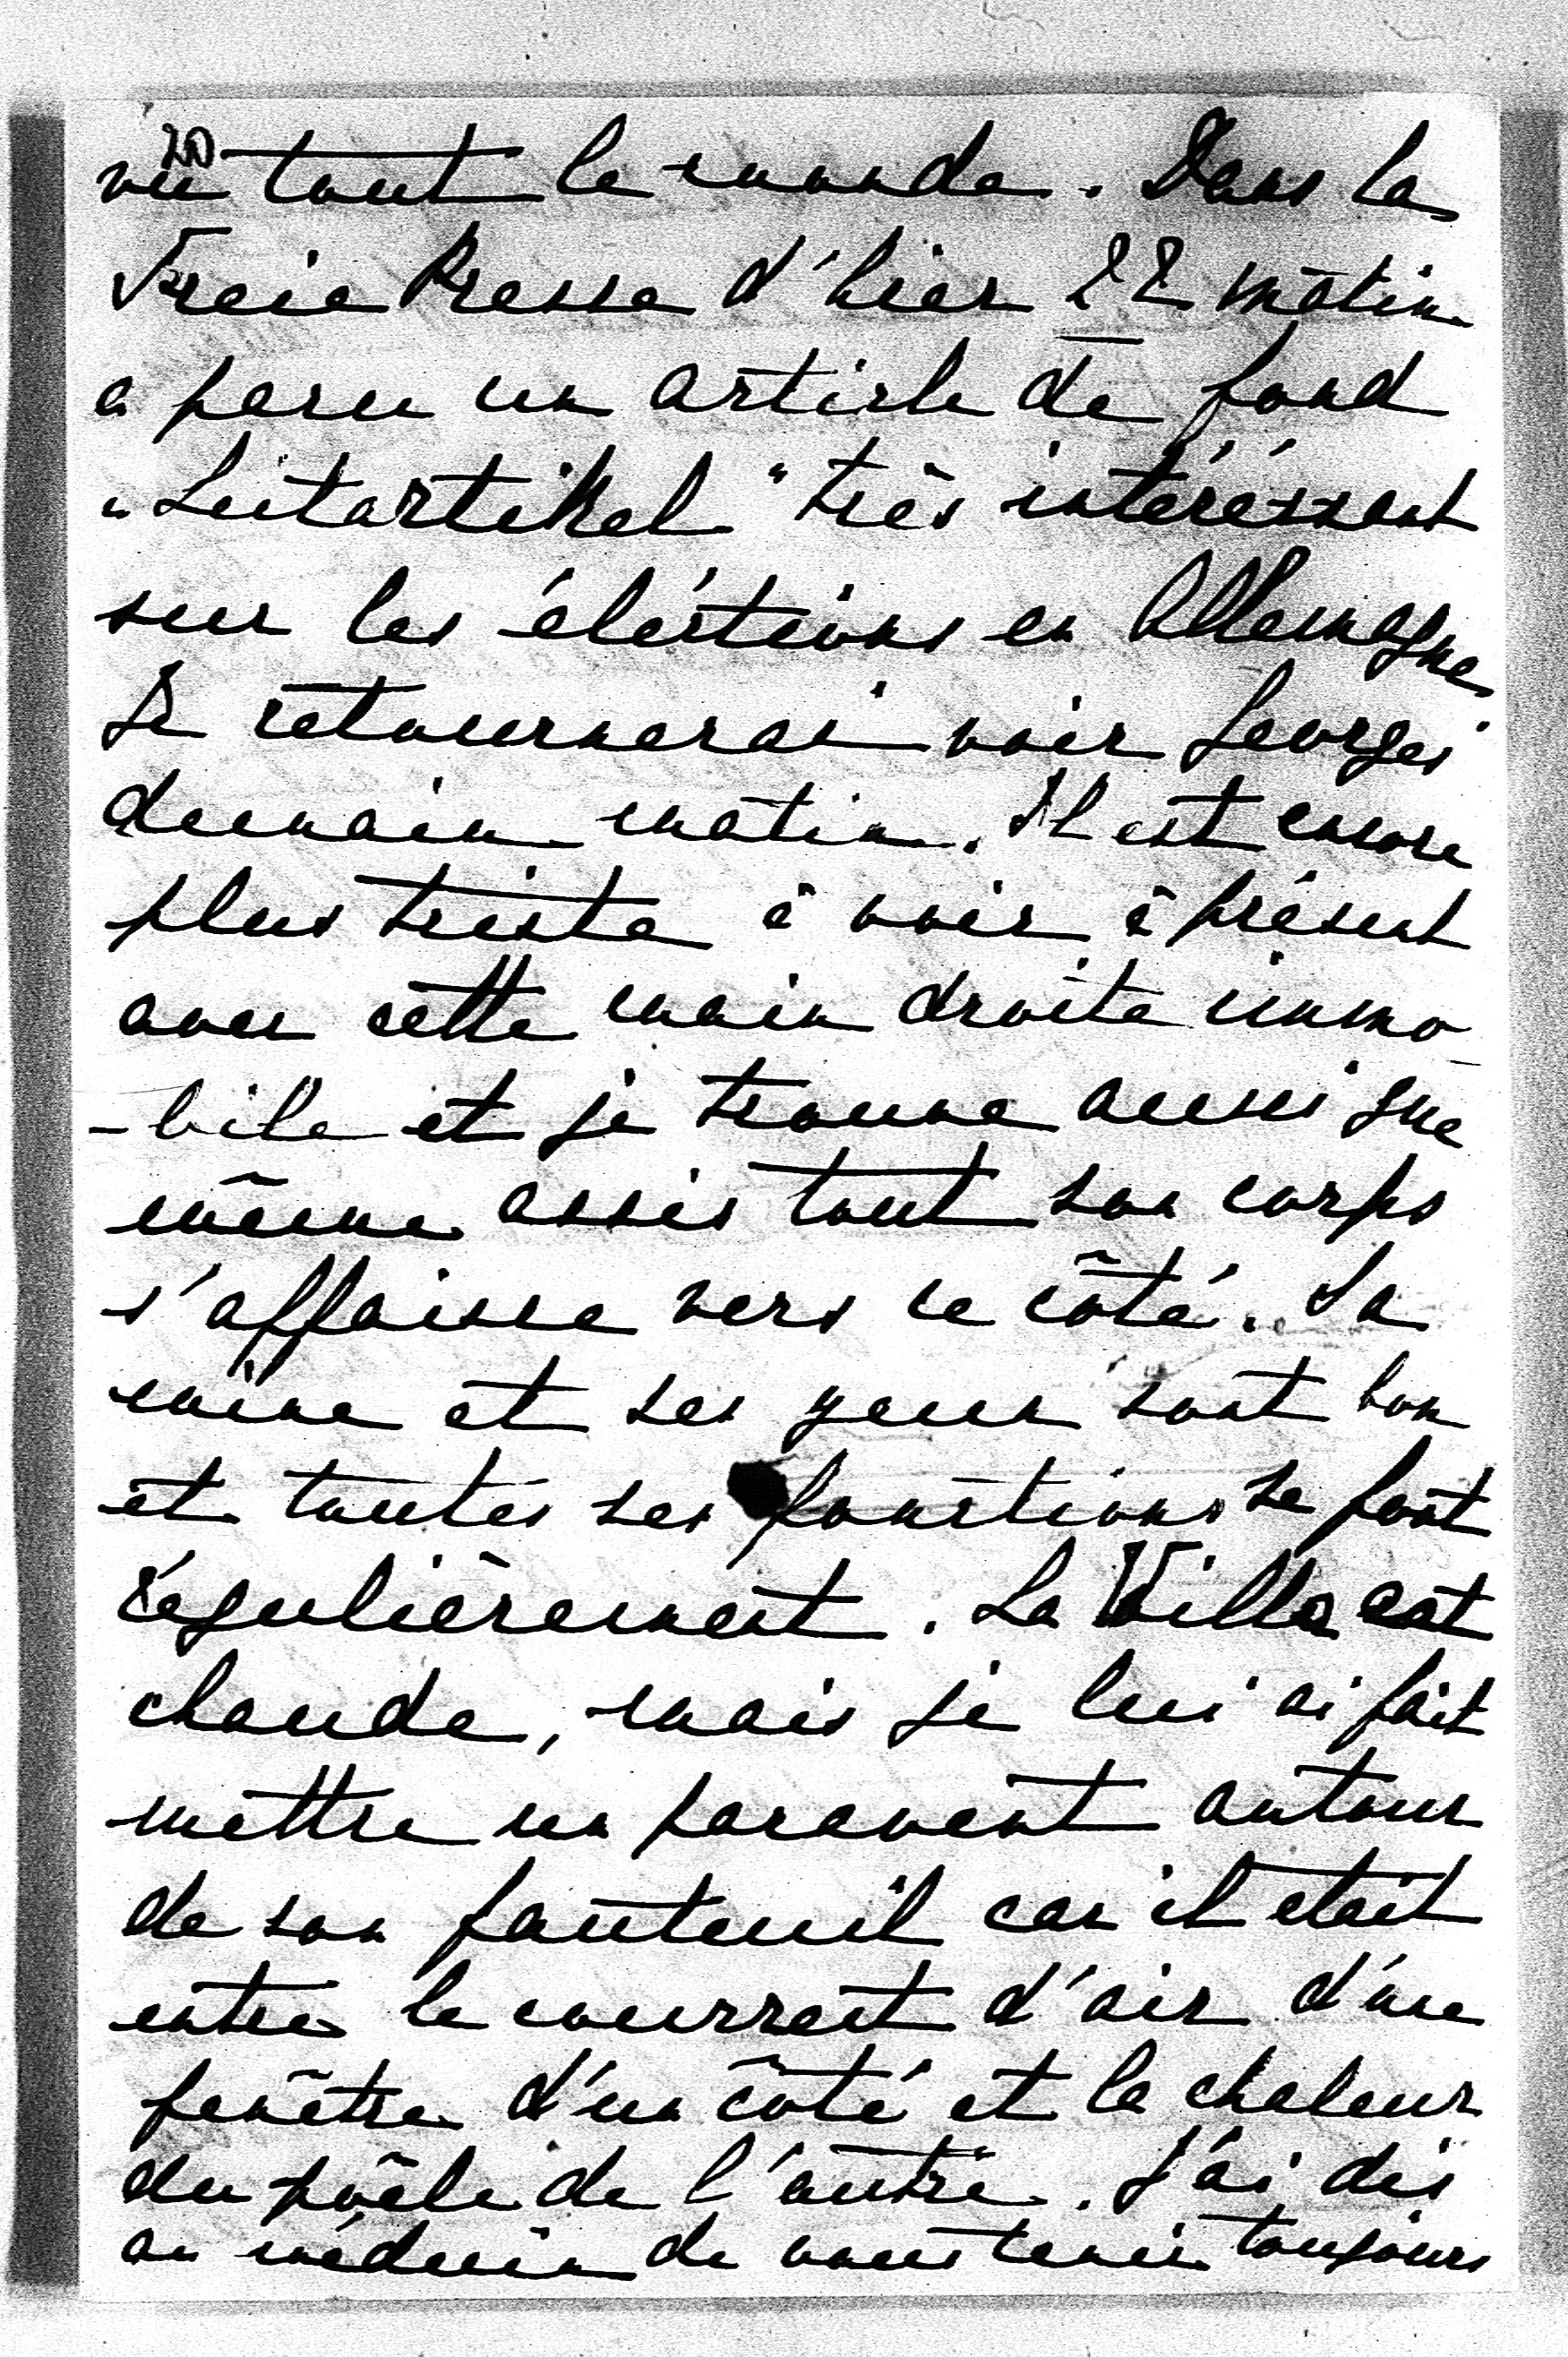 20
vu tout le monde. Dans la
Freie Presse d'hier 22 matin
a paru un article de fond
„Leitartikel" très intéréssant
sur les éléctions en Allemagne.
Je retournerai voir Georges
demain matin. Il est encore
plus triste à voir à présent
avec cette main droite immo-
-bile et je trouve aussi que
même assis tout son corps
s'affaisse vers ce côté. Sa
mine et ses yeux sont bon
et toutes ses fonctions se font
régulièrement. La Villa est
chaude, mais je lui ai fait
mettre un paravent autour
de son fauteuil car il etait
entre le courrant d'air d'une
fenêtre d'un côté et la chaleur
du poêle de l'autre. J'ai dis
au médecin de vous tenir toujours